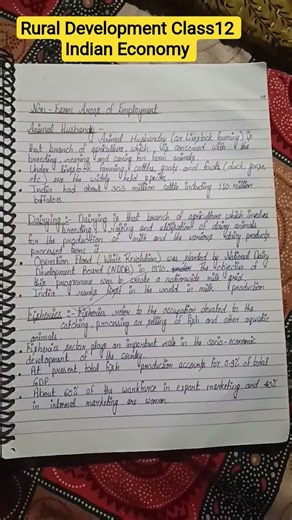 Rural Development Class12
Indian Economy
Non-Farm Areas of Employment
Animal Husbandry -
Animal Husbandry (or livestock farming) is
that branch of agriculture which is concerned with the
breeding, rearing and caring for farm animals.
Under livestock farming cattle, goats and fowls (duck, goose,
etc.) are the widely held species.
India had about 303 million cattle including 110 million
buffaloes.
Dairying :- Dairying is that branch of agriculture which involves
breeding, raising and utilization of dairy animals
for the production of milk and the various dairy products
processed from it.
Operation Flood (White Revolution) was started by National Dairy
Development Board (NDDB) in 1970. the objective of
this programme was to create a nationwide milk grid.
India ranks first in the world in milk production
Fisheries :- Fisheries refers to the occupation devoted to the
catching, processing or selling of fish and other aquatic
animals.
Fisheries sector plays an important role in the socio-economic
development of the country.
At present, total fish production accounts for 0.9% of total
GDP.
About 60% of the workforce in export marketing and 40%
in internal marketing are women.